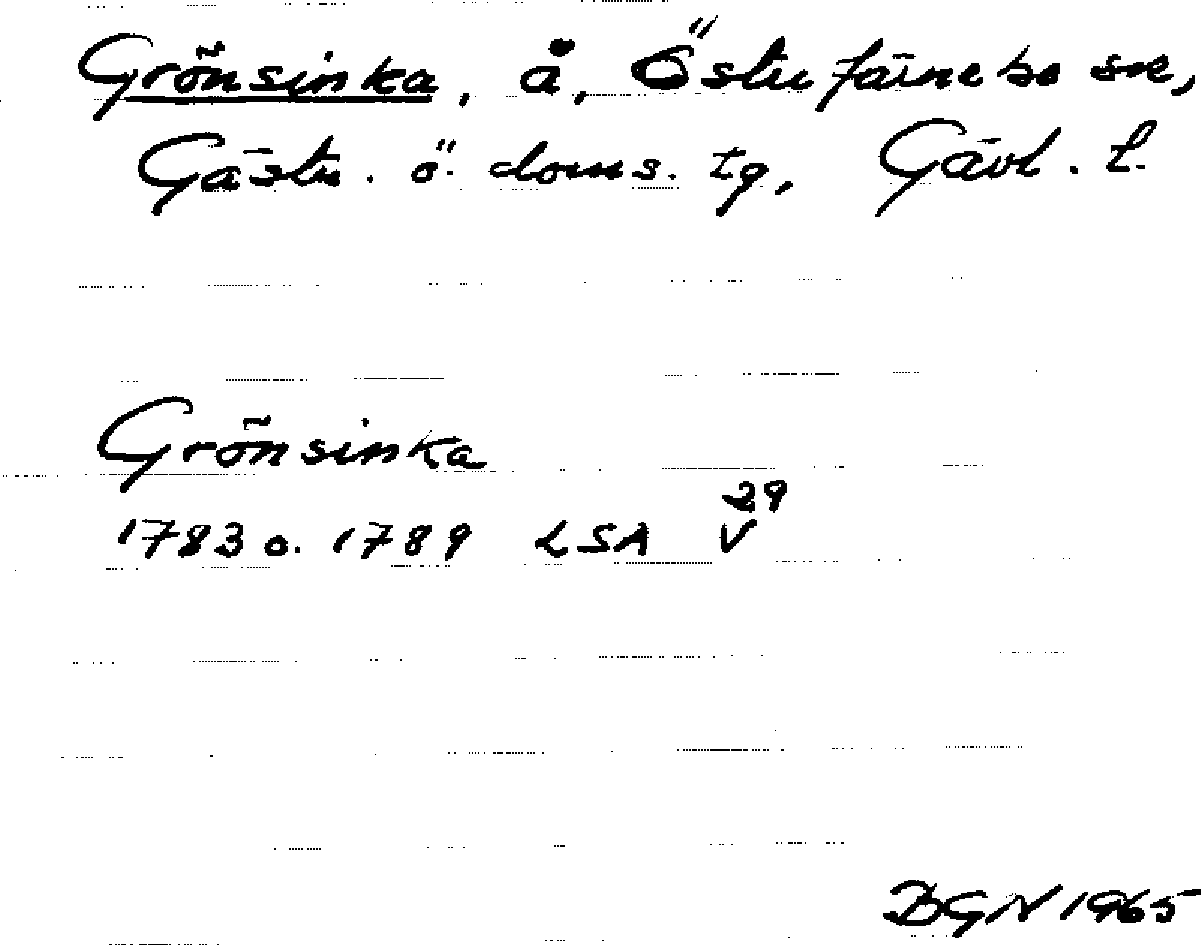 Grönsinka, å, Österfärnebo sn,
Gästr. ö. doms. tg, Gävl. l.
Grönsinka
1783 o. 1789 LSA V 29
BGN 1965